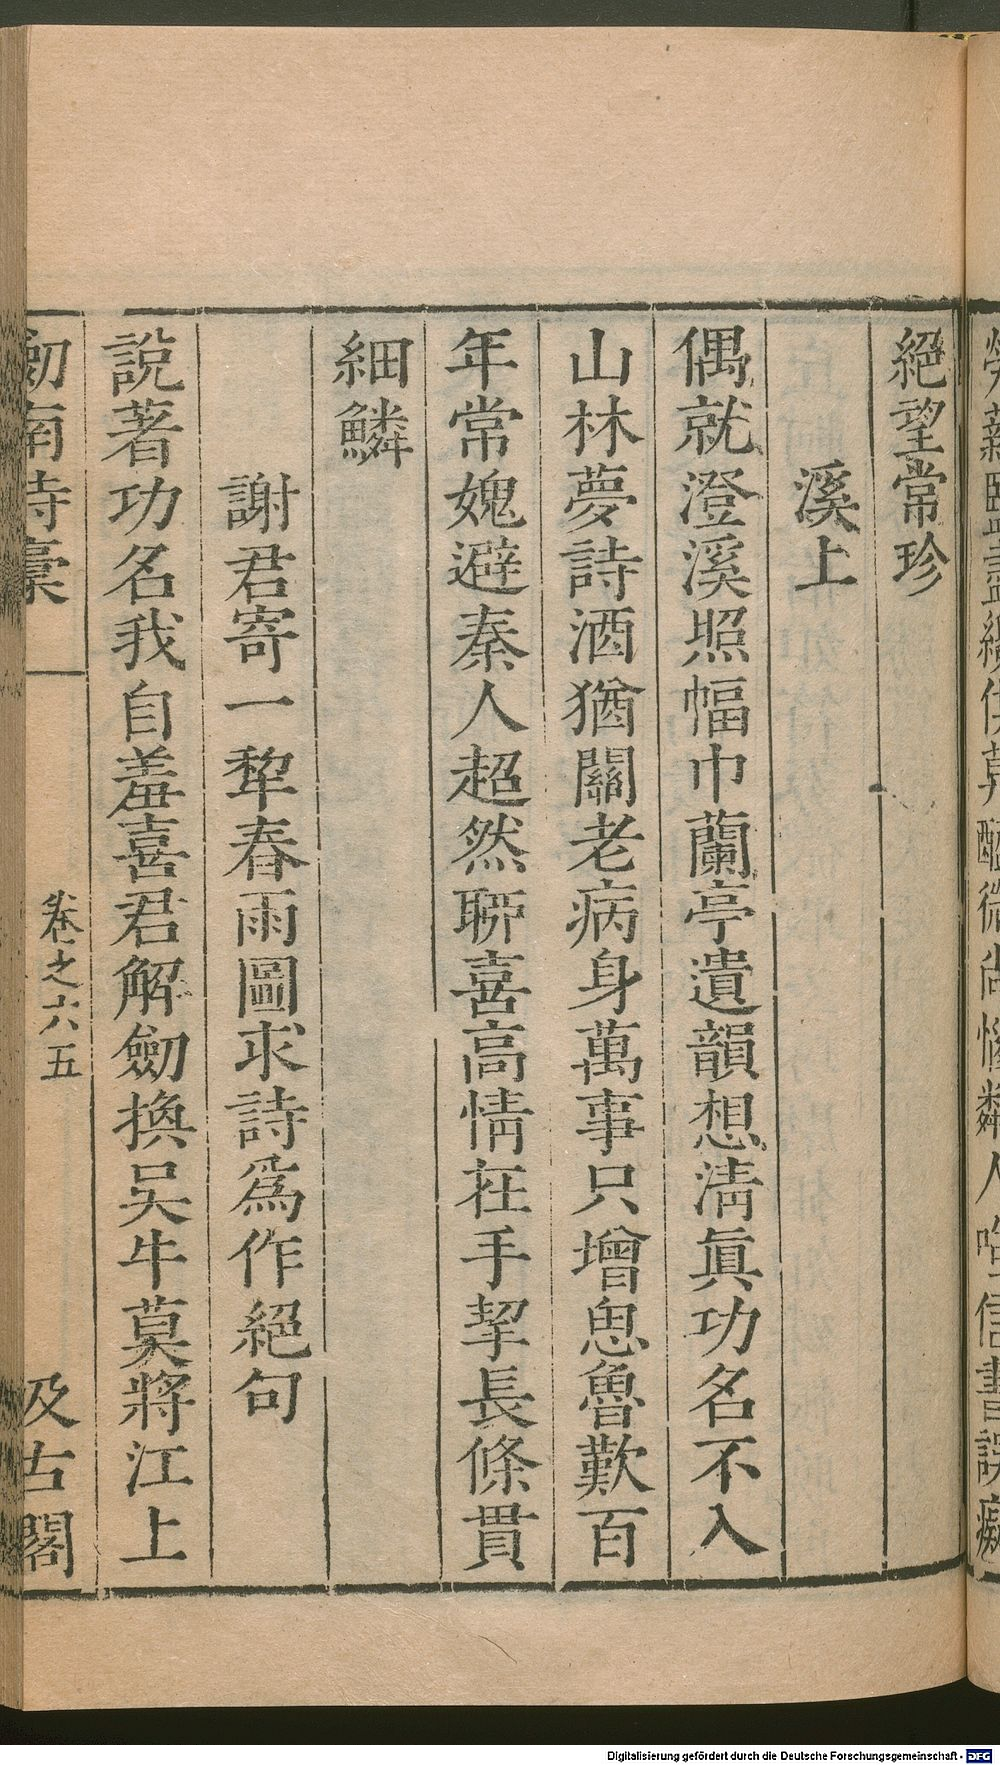 絕望常珍
溪上
偶就澄溪照幅巾蘭亭遺韻想淸眞功名不入
山林夢詩酒猶關老病身萬事只增思魯歎百
年常媿避秦人超然聊喜高情在手挈長條貫
細鱗
謝君寄一犂春雨圖求詩爲作絕句
說著功名我自羞喜君解劒換吴牛莫將江上
劒南詩稾
卷之六五
汲古閣
Digitalisierung gefördert durch die Deutsche Forschungsgemeinschaft - DFG